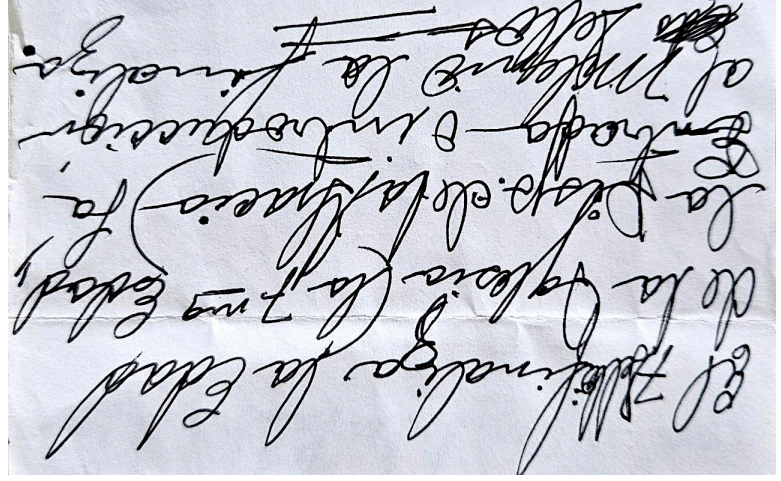 El 7Sello finaliza la Edad
de la Iglesia (la 7ma Edad,
la Disp. de la Gracia) La
Entrada o introduccion
al Milenio la finaliza
Sellos